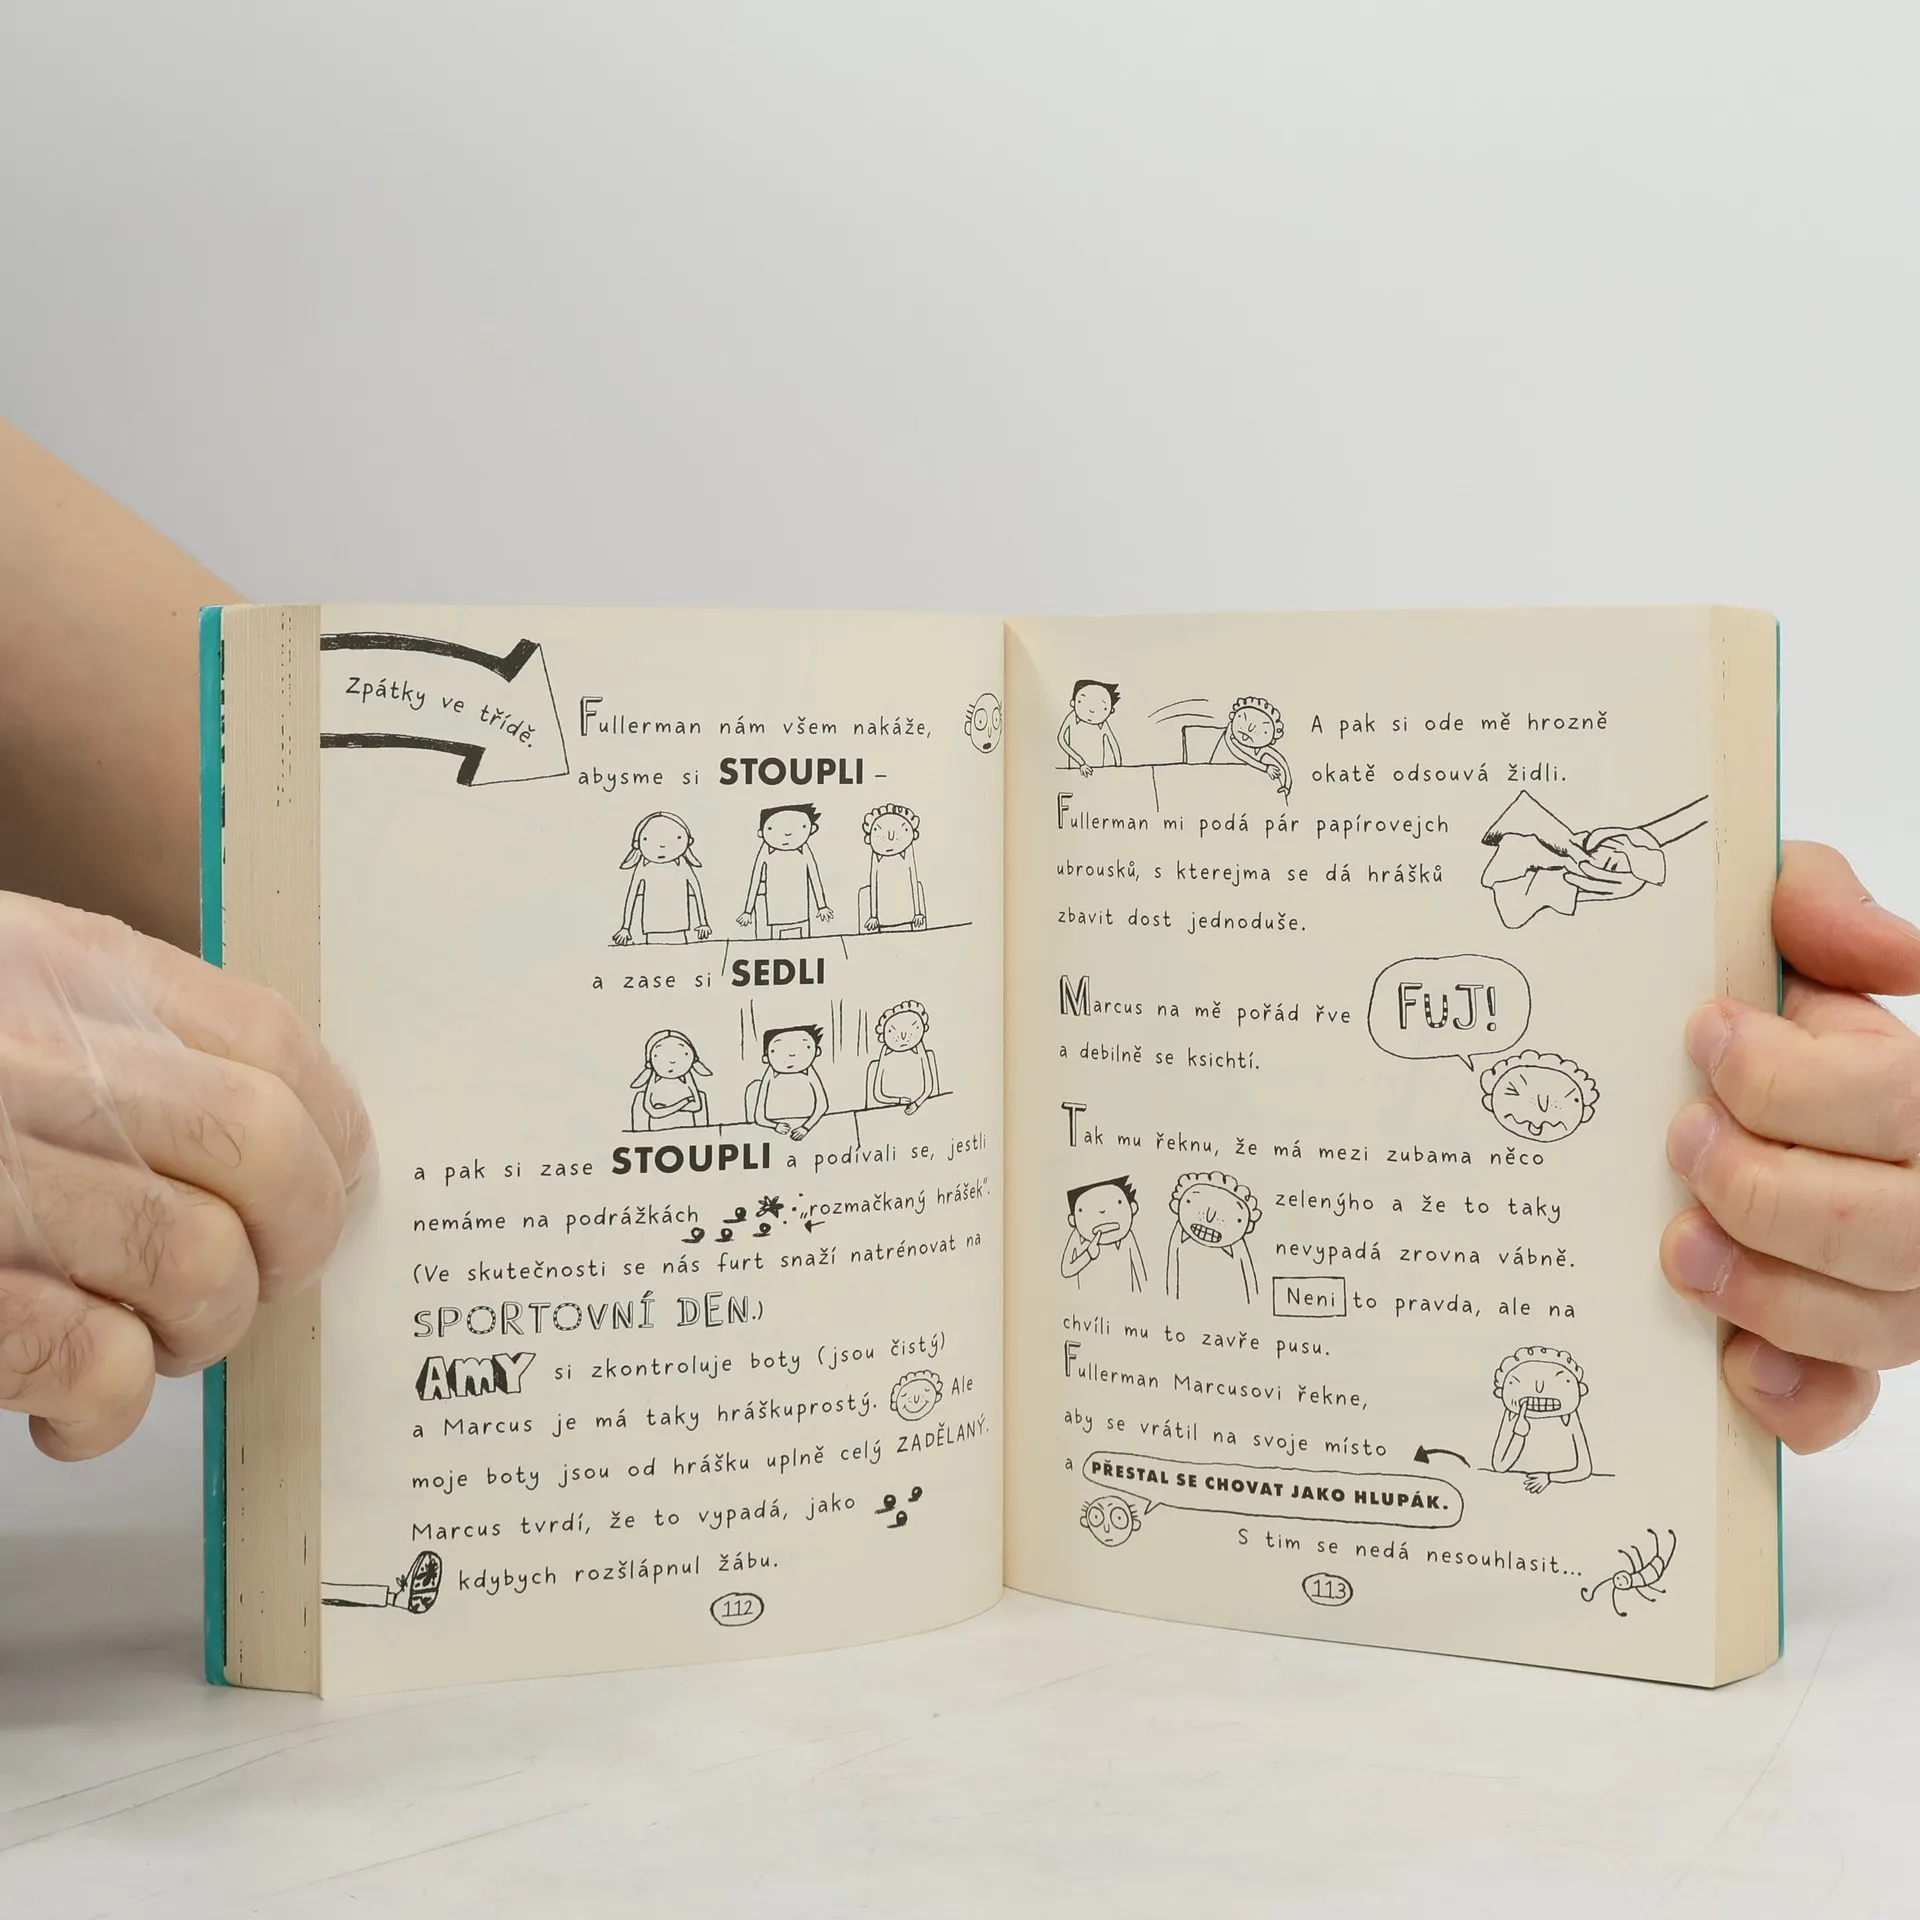 Zpátky ve třídě.
Fullerman nám všem nakáže,
abysme si STOUPLI –
a zase si SEDLI
a pak si zase STOUPLI a podívali se, jestli
nemáme na podrážkách „rozmačkaný hrášek“.
(Ve skutečnosti se nás furt snaží natrénovat na
SPORTOVNÍ DEN.)
AMY si zkontroluje boty (jsou čistý)
a Marcus je má taky hráškuprostý. Ale
moje boty jsou od hrášku uplně celý ZADĚLANÝ.
Marcus tvrdí, že to vypadá, jako
kdybych rozšlápnul žábu.
112
A pak si ode mě hrozně
okatě odsouvá židli.
Fullerman mi podá pár papírovejch
ubrousků, s kterejma se dá hrášků
zbavit dost jednoduše.
Marcus na mě pořád řve
FUJ!
a debilně se ksichtí.
Tak mu řeknu, že má mezi zubama něco
zelenýho a že to taky
nevypadá zrovna vábně.
Neni to pravda, ale na
chvíli mu to zavře pusu.
Fullerman Marcusovi řekne,
aby se vrátil na svoje místo
a PŘESTAL SE CHOVAT JAKO HLUPÁK.
S tim se nedá nesouhlasit...
113